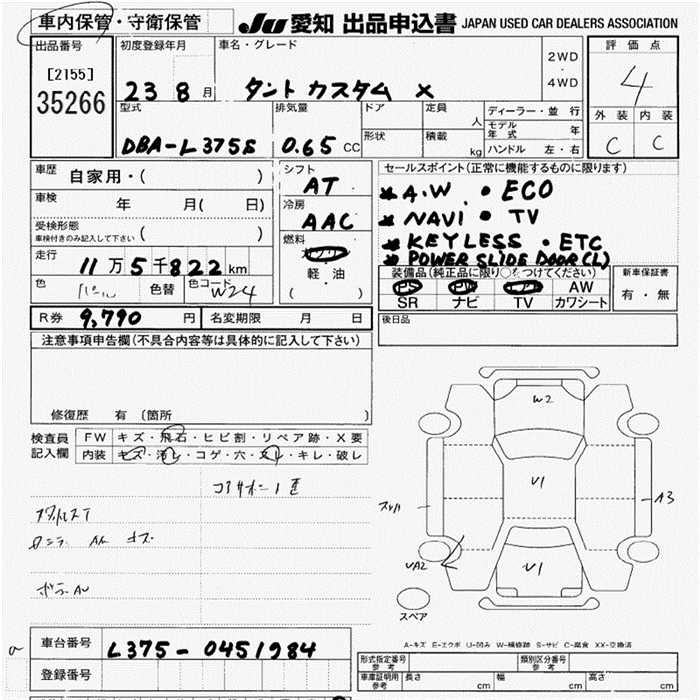 車内保管・守衛保管 JU 愛知 出品申込書 JAPAN USED CAR DEALERS ASSOCIATION
出品番号 初度登録年月 車名・グレード 評価点
[2155] 2WD
35266 23 8 月 タント カスタム X ・ 4
4WD
型式 排気量 ドア 定員 人 ディーラー・並行 外装 内装
モデル年式 年
DBA-L375S 0.65 CC 形状 積載 kg ハンドル 左・右 C C
車歴 自家用・( ) シフト AT セールスポイント(正常に機能するものに限ります)
車検 年 月( 日) 冷房 AAC A.W ・ ECO
受検形態 NAVI ・ TV
車検付きのみ記入して下さい ( ) 燃料 KEYLESS ・ ETC
走行 11万5千822km 軽・油 POWER SLIDE DOOR(L)
色 パール 色替 色コード W24 ( )
装備品(純正品に限り○をつけてください) 新車保証書
PS PW エアB AW 有・無
SR ナビ TV カワシート
R券 9,790 円 名変期限 月 日 後日品
注意事項申告欄(不具合内容等は具体的に記入して下さい)
修復歴 有 (箇所 )
検査員 FW キズ・飛石・ヒビ割・リペア跡・X要
記入欄 内装 キズ・汚レ・コゲ・穴・スレ・キレ・破レ
W2
U1
A3
UA2
U1
スペア
A-キズ E-エクボ U-凹み W-補修跡 S-サビ C-腐食 XX-交換済
車台番号 L375-0451984
登録番号
形式指定番号参考 類別区分番号参考
車庫証明用参考 長さ cm 幅 cm 高さ cm